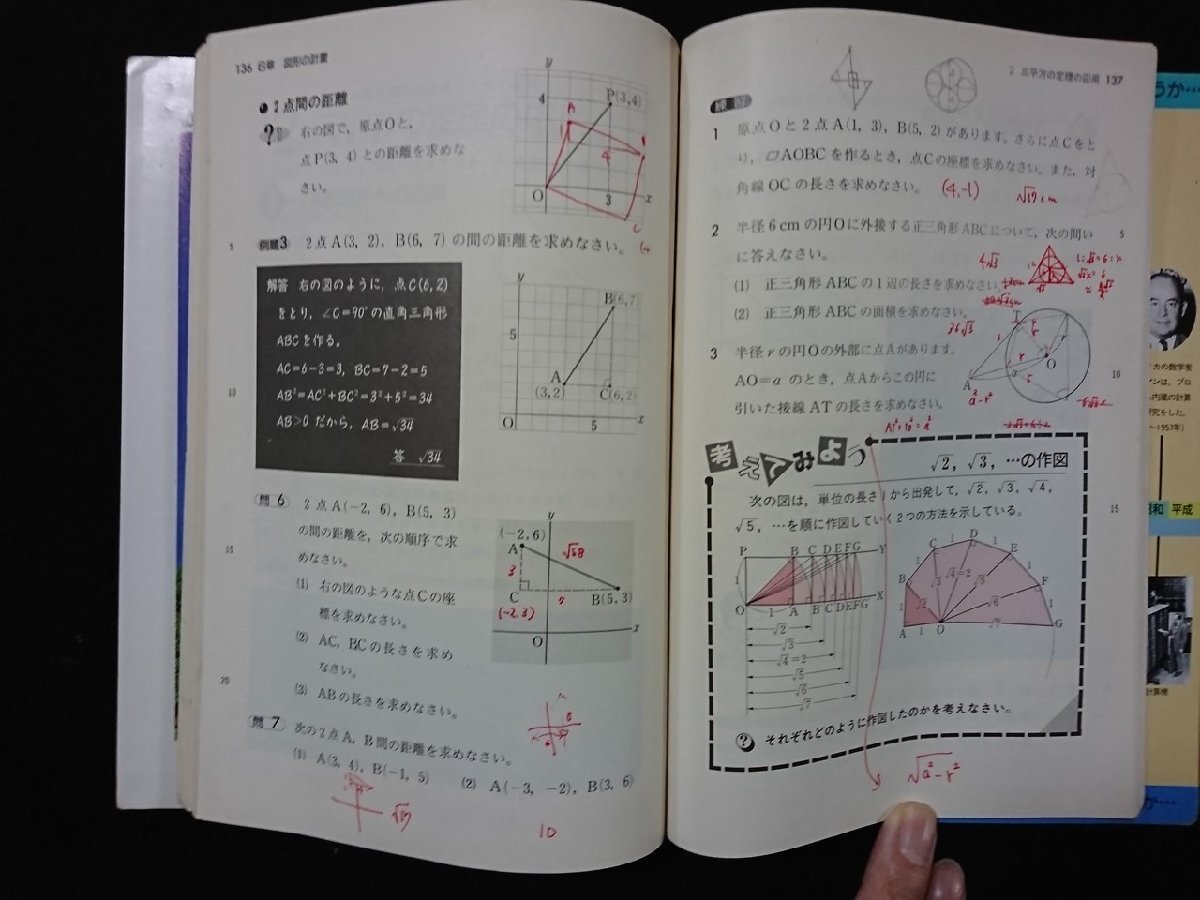 136 6章 図形の計量
● 2点間の距離
右の図で，原点Oと，
点P(3, 4) との距離を求めな
さい。
y
4
P(3, 4)
A
4
O
3
x
C
5
例題3 2点A(3, 2)，B(6, 7) の間の距離を求めなさい。
解答 右の図のように，点C(6, 2)
をとり，∠C=90°の直角三角形
ABCを作る。
AC=6−3=3, BC=7−2=5
AB²=AC²+BC²=3²+5²=34
AB>0だから，AB=√34
答 √34
10
y
B(6,7)
5
A
(3,2)
C(6,2)
O
5
x
問6 2点A(−2, 6)，B(5, 3)
の間の距離を，次の順序で求
めなさい。
15
(1) 右の図のような点Cの座
標を求めなさい。
(2) AC，BCの長さを求め
なさい。
20
(3) ABの長さを求めなさい。
y
(−2,6)
A
√58
3
C
(-2,3)
7
B(5,3)
O
x
問7 次の2点A，B間の距離を求めなさい。
(1) A(3, 4)，B(−1, 5)
(2) A(−3, −2)，B(3, 6)
√17
10
2 三平方の定理の応用 137
練習
1 原点Oと2点A(1, 3)，B(5, 2)があります。さらに点Cをと
り，▱AOBCを作るとき，点Cの座標を求めなさい。また，対
角線OCの長さを求めなさい。
(4,-1)
2 半径6cmの円Oに外接する正三角形ABCについて，次の問い
に答えなさい。
5
(1) 正三角形ABCの1辺の長さを求めなさい。
(2) 正三角形ABCの面積を求めなさい。
36√3
3 半径rの円Oの外部に点Aがあります。
AO=aのとき，点Aからこの円に
引いた接線ATの長さを求めなさい。
10
T
r
A
a
O
a²-r²
考えてみよう
√2，√3，…の作図
次の図は，単位の長さ1から出発して，√2，√3，√4，
√5，…を順に作図していく2つの方法を示している。
15
P B C D E F G Y
1
O 1 A B C D E F G X
√2
√3
√4=2
√5
√6
√7
C 1 D 1 E
B
1
F
1
A 1 O G
√2 √3 √4=2 √5 √6 √7
それぞれどのように作図したのかを考えなさい。
√a²-r²
うか…
カの数学者
ンは，プロ
昭和 平成
計算機